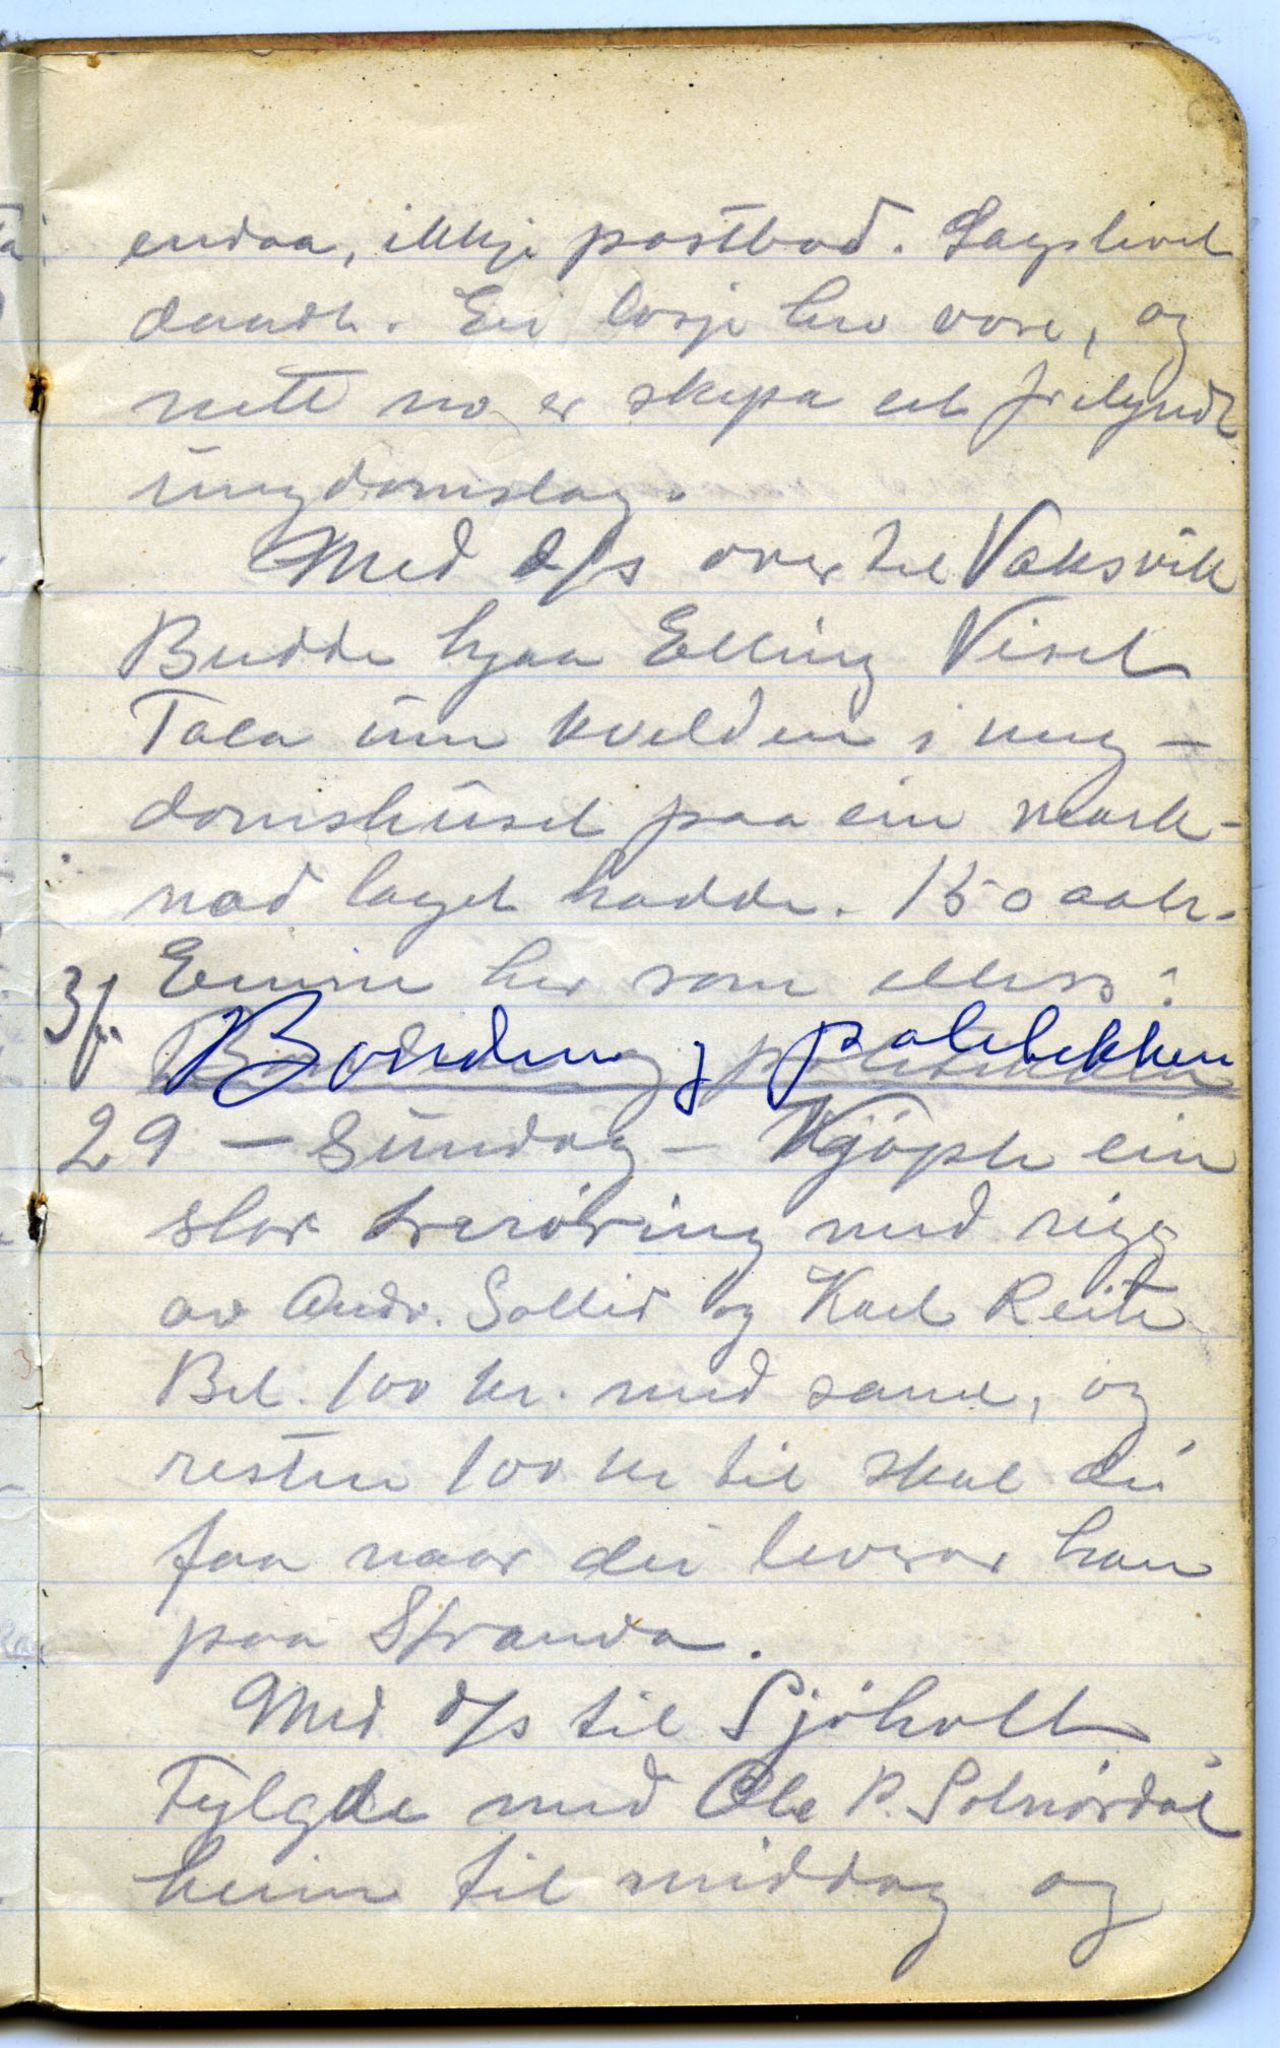 endaa, ikkje postbod. Lagslivet
daudt. Ei losje hev vore, og
nett no er skipa eit frilyndt
ungdomslag.
Med d/s over til Vaksvik
Budde hjaa Elling Viset
Tala um kvelden i ung-
domshuset paa ein mark-
nad laget hadde. 150 aahr.
Emne her som elles:
3f. Bonden og politikken
29 - Sundag - Kjøpte ein
stor treroring med rigg
av Andr. Sollid og Karl Reite
Bet. 100 kr. med same, og
resten 100 kr til skal dei
faa naar dei leverar han
paa Stranda.
Med d/s til Sjöholt
Fylgde med Ole P. Solnördal
heim til middag og